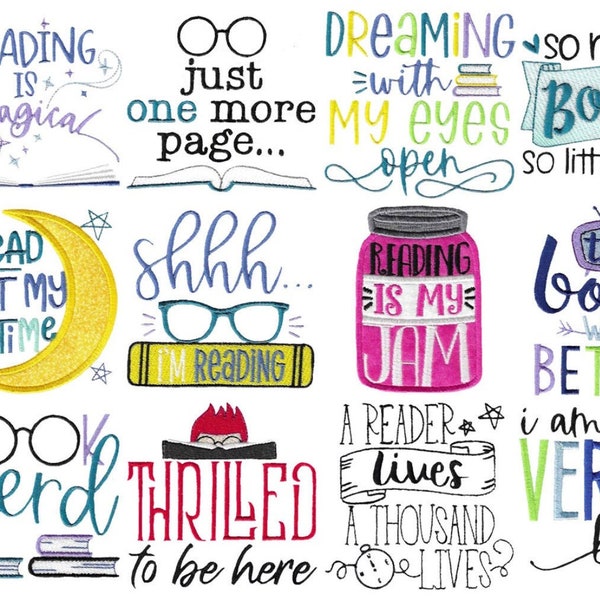 EADING
IS
magical
just
one more
page...
DREAMING
with
MY EYES
open
so m
BOO
so littl
EAD
T MY
TIME
shhh...
I'M READING
READING
IS MY
JAM
t
boo
w
BET
OOK
erd
THRILLED
to be here
A READER
lives
A THOUSAND
LIVES
i am
VER
b